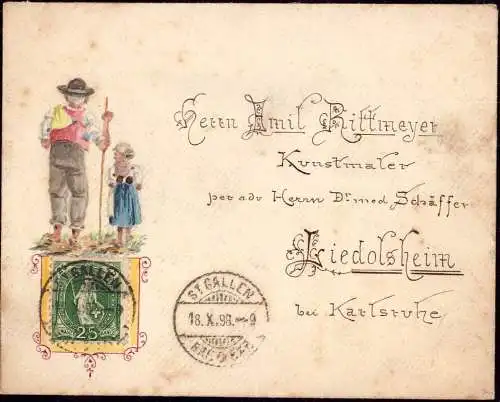 Herrn Emil Rittmeyer
Kunstmaler
per adr Herrn Dr med Schäffer
Liedolsheim
bei Karlsruhe
ST. GALLEN
25
ST. GALLEN
18.X.98.-9